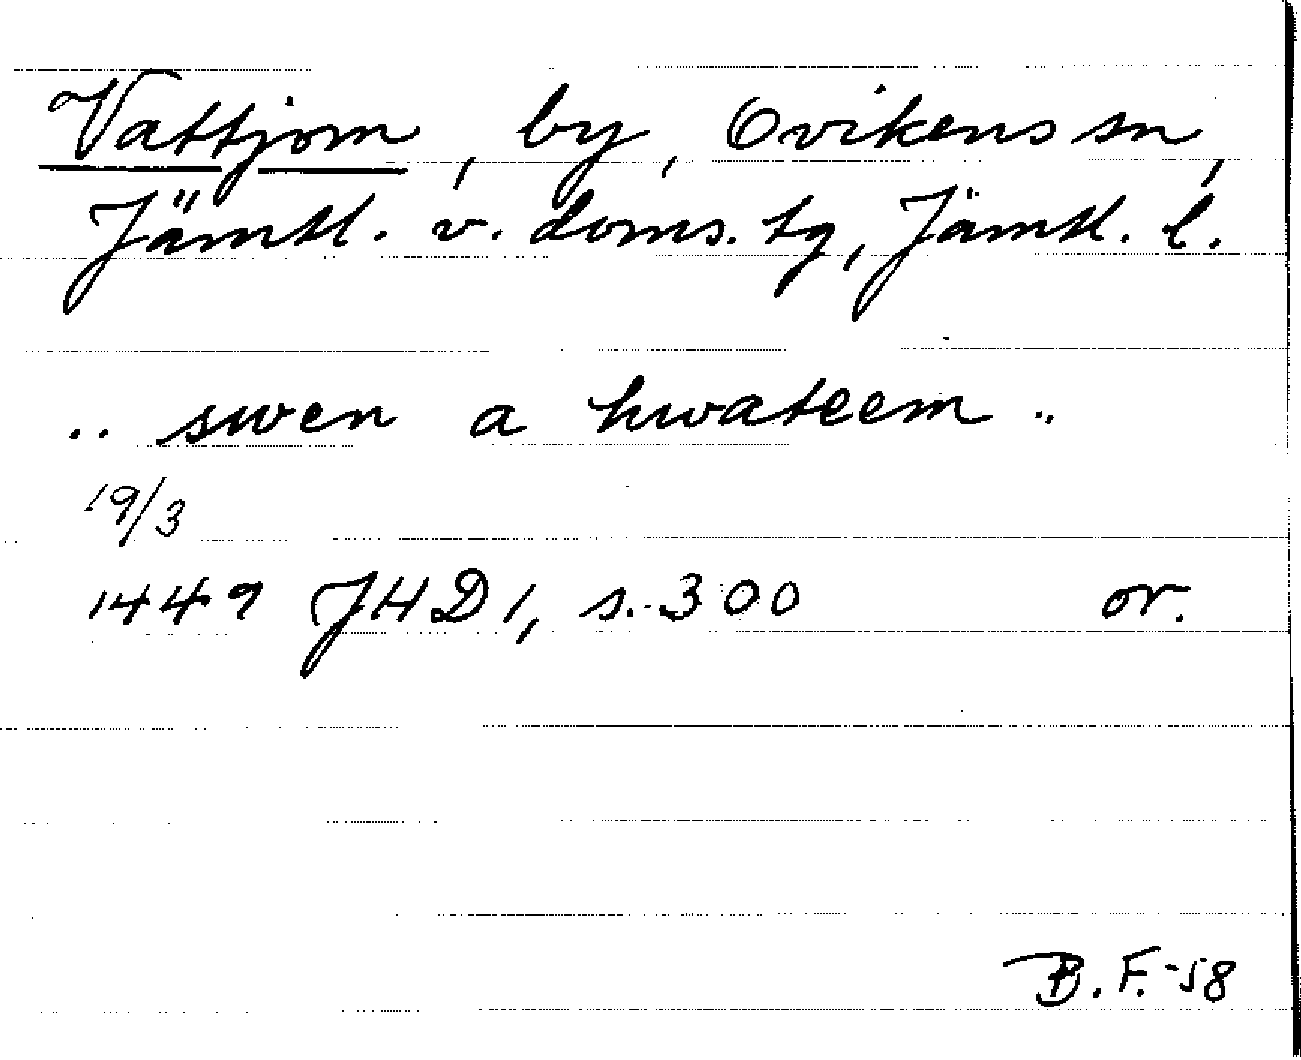 Vattjom, by, Ovikens sn,
Jämtl. v. doms. tg, Jämtl. l.
.. swen a hwateem ..
19/3
1449 JHD 1, s. 300 or.
B. F. -58